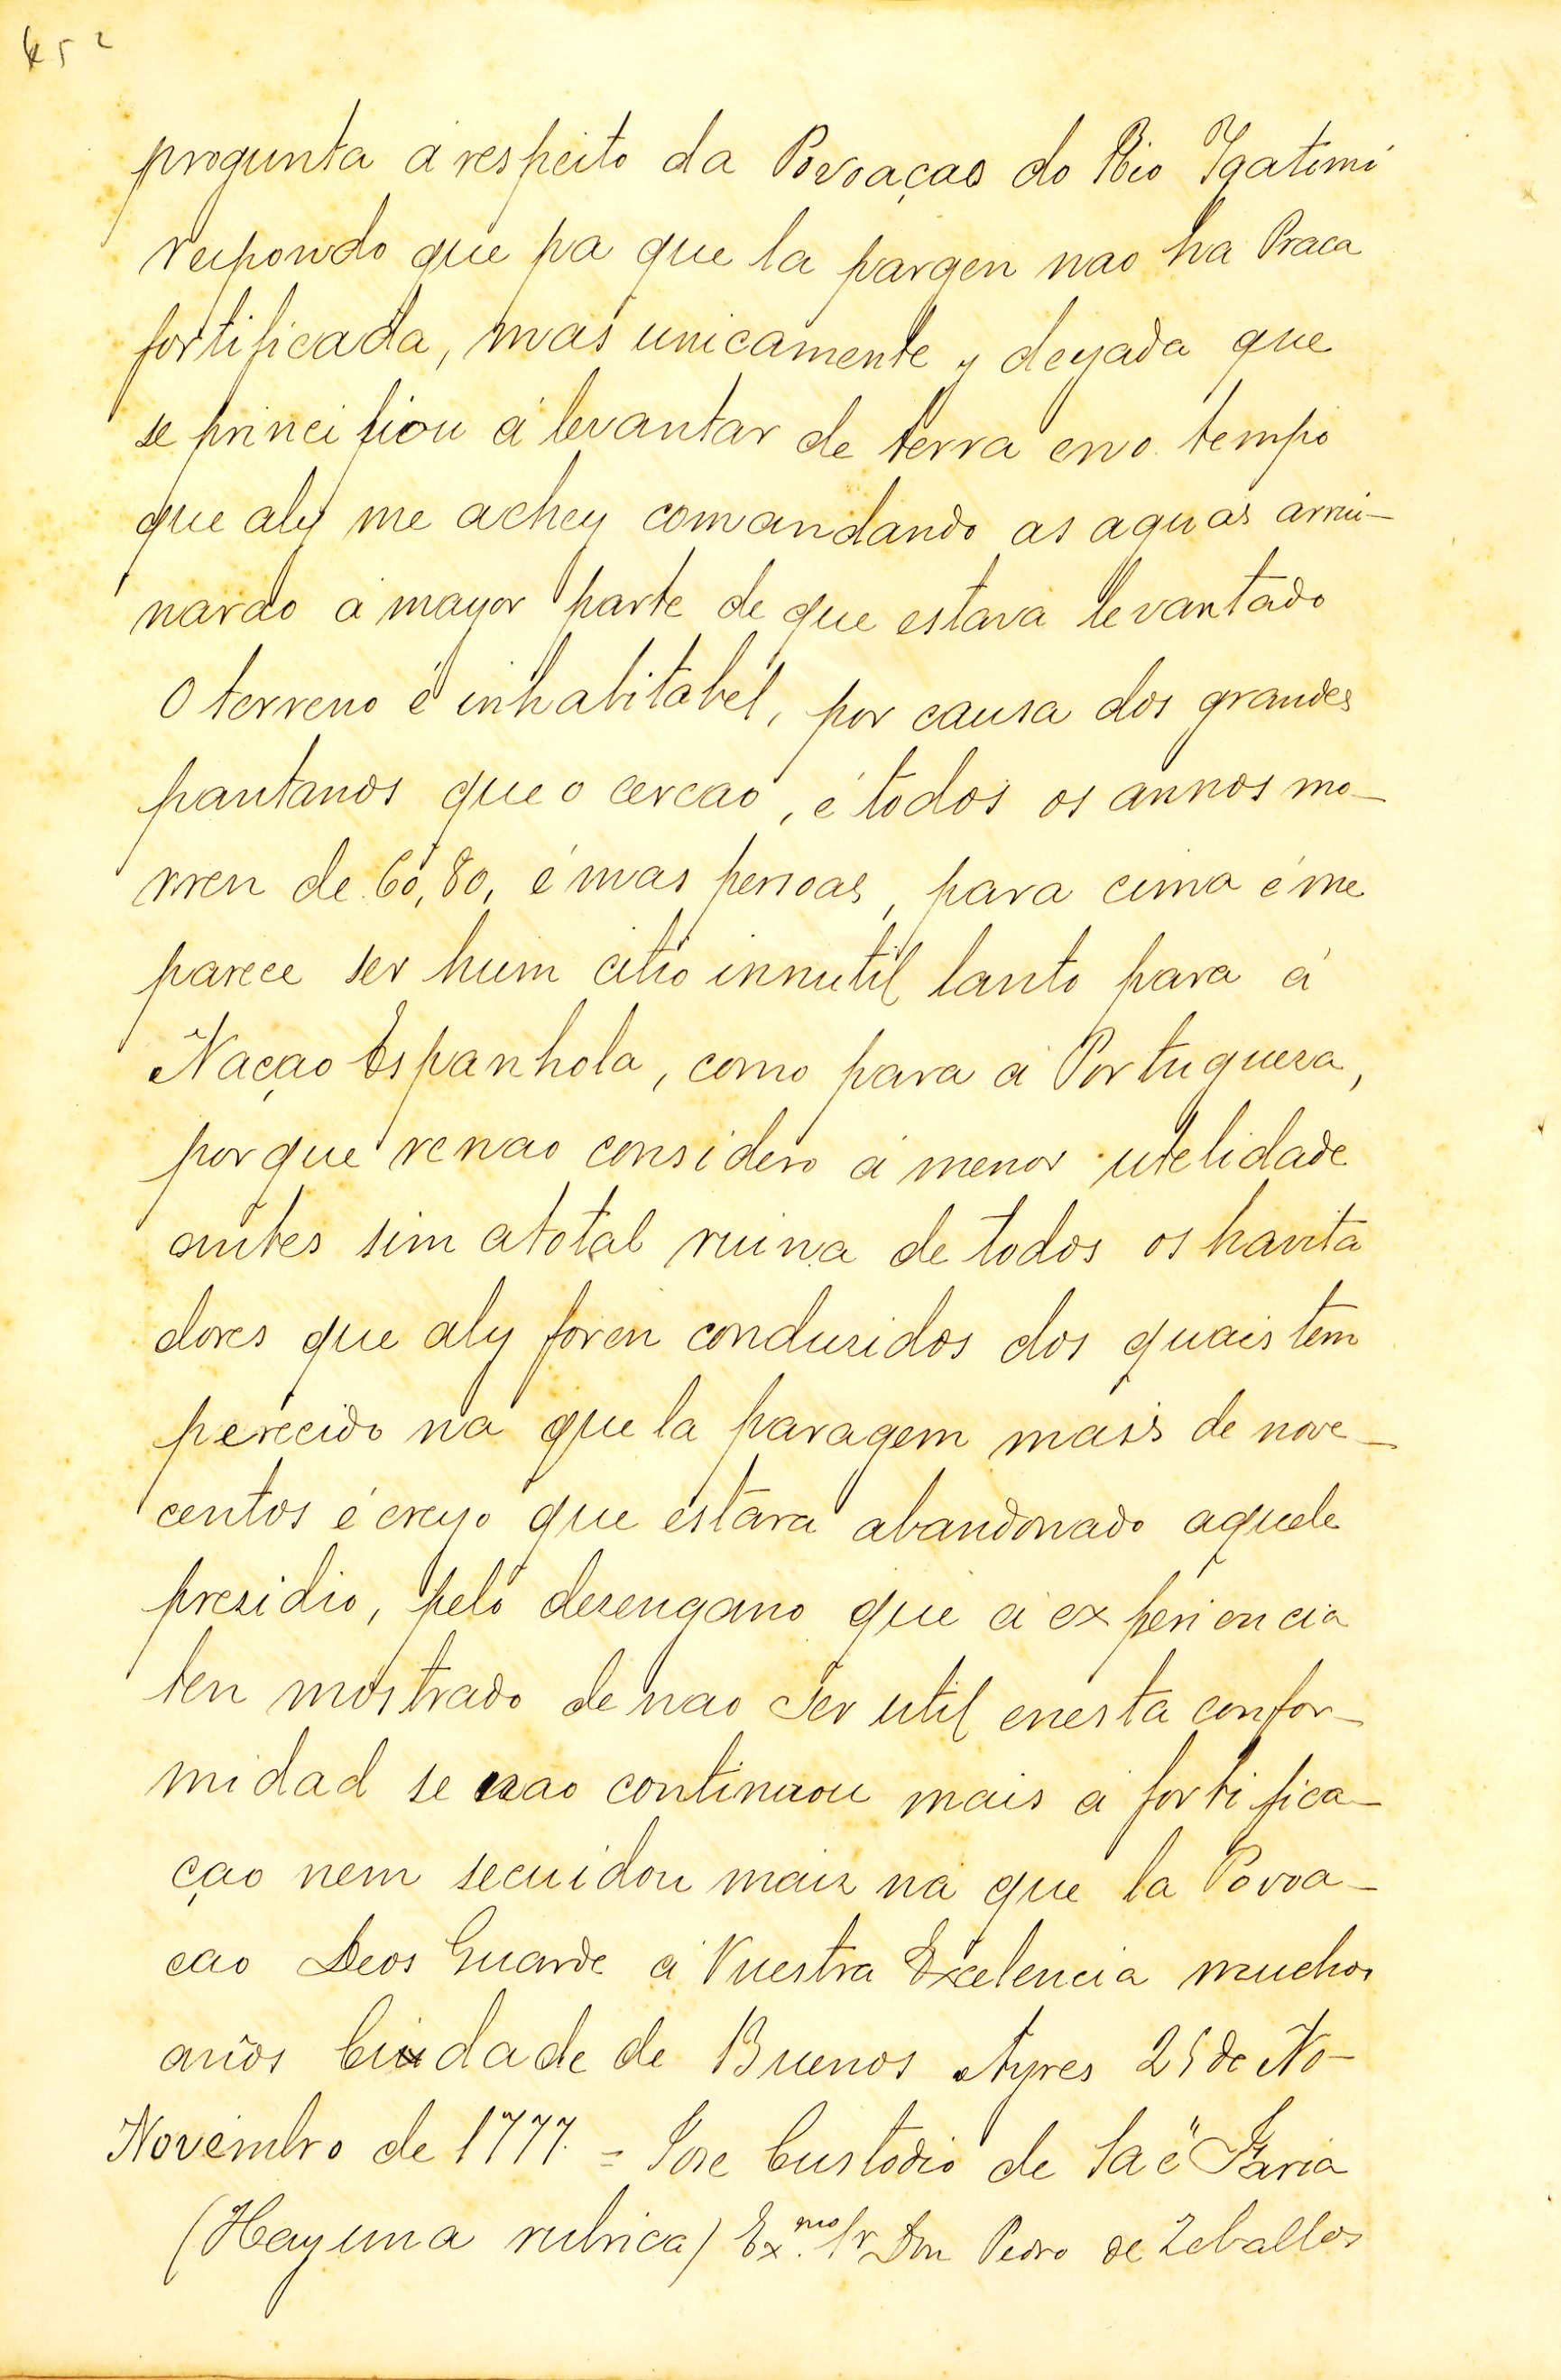 progunta á respeito da Povoaçao do Rio Ygatimi
respondo que pa que la pargen nao ha Praca
fortificada, mas unicamente y deyada que
se principiou á levantar de terra eno tempo
que aly me achey comandando as aguas arrui-
narao a mayor parte de que estava levantado
O terreno é inhabitabel, por causa dos grandes
pantanos que o cercao, é todos os annos mo-
rren de 60, 80, é mas persoas, para cima é me
parece ser hum citio innutil tanto para á
Naçao Espanhola, como para á Portuguesa,
porque renao considero á menor utelidade
antes sim atotal ruina de todos os havita
dores que aly foren condusidos dos quais tem
perecido na que la paragem mais de nove-
centos é creyo que estara abandonado aquele
presidio, pelo desengano que á experiencia
ten mostrado de nao ser util enesta confor-
midad se nao continuou mais á fortifica-
çao nem secuidou mais na que la Povoa-
cao Deos Guarde á Vuestra Excelencia muchos
años Ciudade de Buenos Ayres 25 de No-
Novembro de 1777. = Jose Custodio de Sa é Faria
(Hay una rubrica) Ex.mo Sr Don Pedro de Zeballos